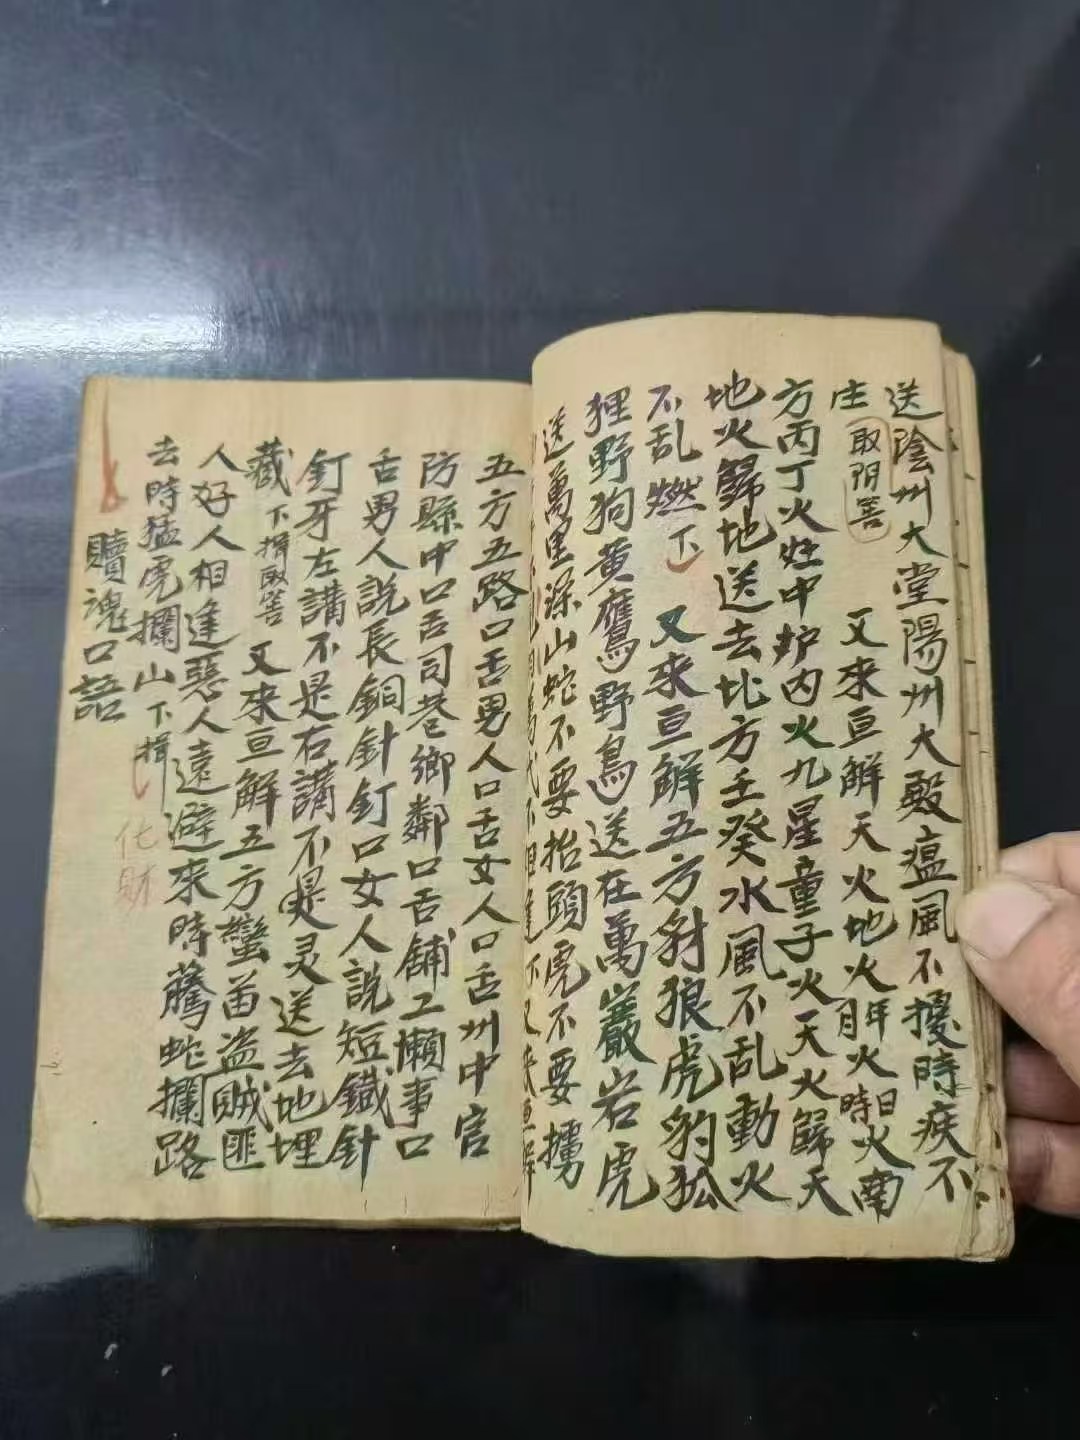 送陰州大堂陽州大殿瘟風不擾時疾不
庄 取阴善 又來亘解天火地火年火月日火時南
方丙丁火灶中炉内火九星童子火天火歸天
地火歸地送去北方壬癸水風不乱動火
不乱燃下 又來亘解五方豺狼虎豹狐
狸野狗黄鷹野鳥送在萬巖岩虎
送萬里深山蛇不要抬頭虎不要擄
五方五路口舌男人口舌女人口舌州中官
防縣中口舌司巷鄉鄰口舌舖工懶事口
舌男人說長銅針釘口女人說短鐡針
釘牙左講不是右講不是灵送去地埋
藏下揖取善 又來亘解五方蠻苗盗賊匪
人好人相逢惡人遠避來時騰蛇攔路
去時猛虎攔山下揖 化财
贖魂口語